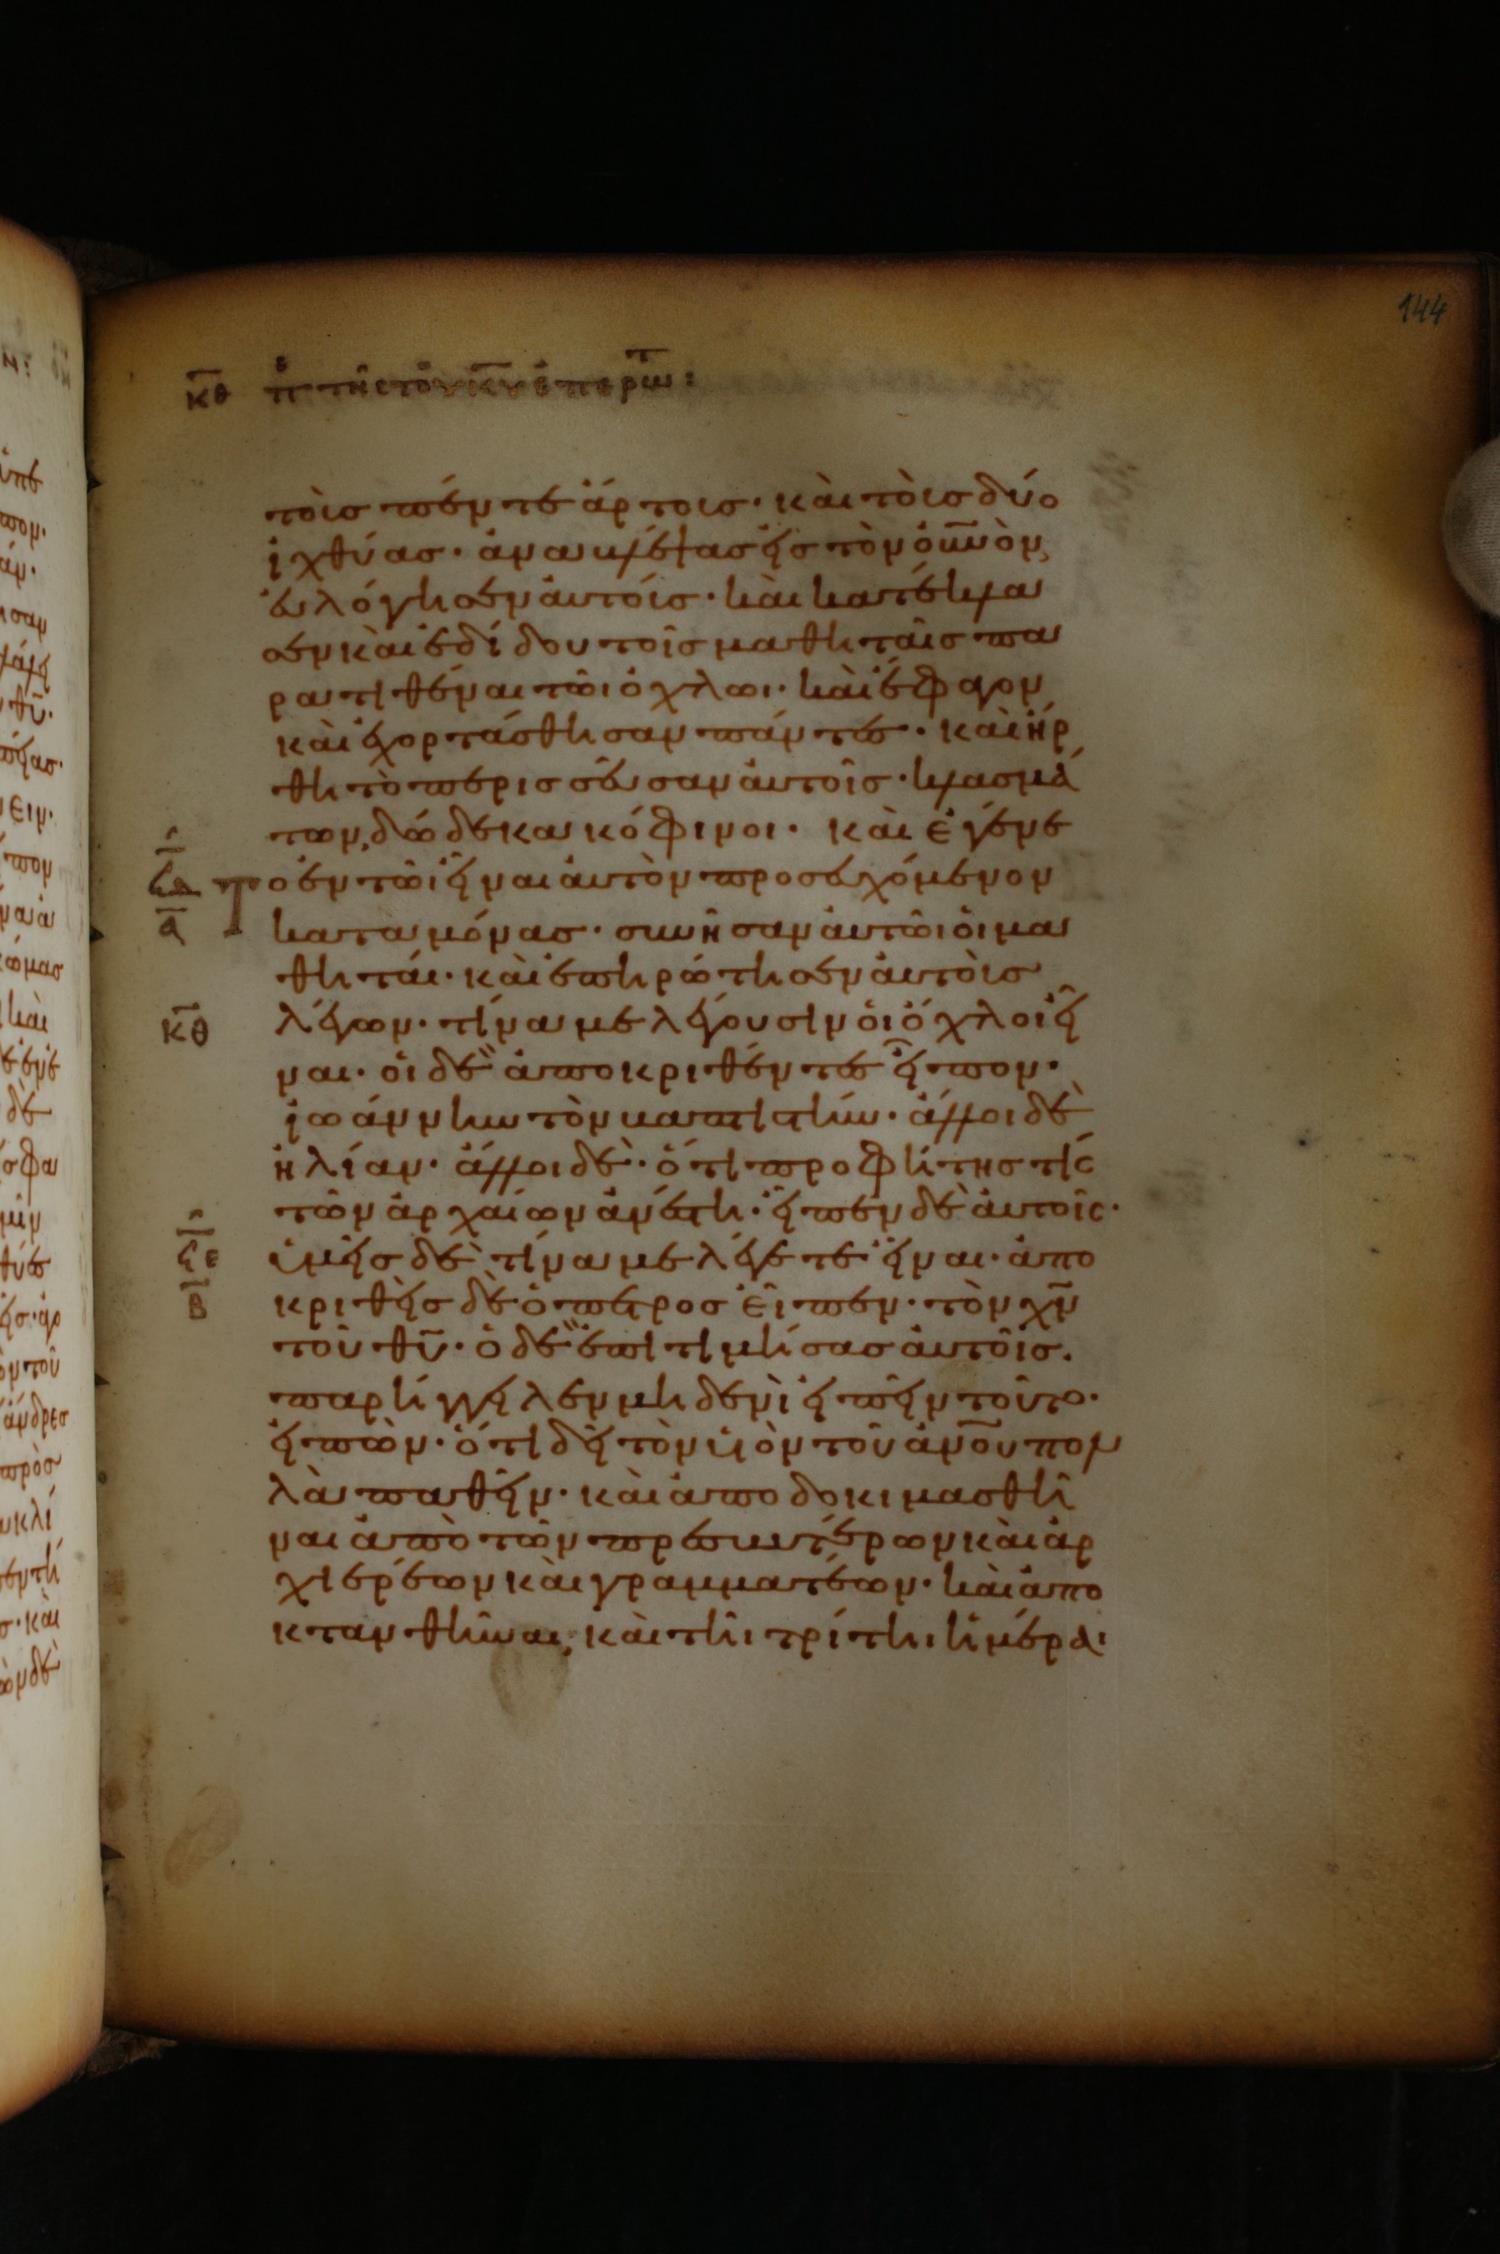 κθ π τῆς τοῦ κυ ἐπερωτ:
144
τοὺς πέντε ἄρτους· καὶ τοὺς δύο
ἰχθύας· ἀναβλέψας εἰς τὸν οὐνὸν,
εὐλόγησεν αὐτοὺς· καὶ κατέκλα
σεν καὶ ἐδίδου τοῖς μαθηταῖς πα
ρατιθέναι τῶι ὄχλωι· καὶ ἔφαγον
καὶ ἐχορτάσθησαν πάντες· καὶ ἤρ
θη τὸ περισσεῦσαν αὐτοῖς· κλασμά
των, δώδεκα κόφινοι· καὶ ἐγένε
το ἐν τῶι εἶναι αὐτὸν προσευχόμενον
κατα μόνας· συνῆσαν αὐτῶι οἱ μα
θηταί· καὶ ἐπηρώτησεν αὐτοὺς
κθ
λέγων· τίνα με λέγουσιν οἱ ὄχλοι εἶ
ναι· οἱ δὲ ἀποκριθέντες εἶπον·
ἰωάννην τὸν βαπτιστήν· ἄλλοι δὲ
ἠλίαν· ἄλλοι δὲ· ὅτι προφήτης τίς
τῶν ἀρχαίων ἀνέστη· εἶπεν δὲ αὐτοῖς·
ὑμεῖς δὲ τίνα με λέγετε εἶναι· ἀπο
κριθεὶς δὲ ὁ πέτρος εἶπεν· τὸν χν
τοῦ θυ· ὁ δὲ ἐπιτιμήσας αὐτοῖς.
παρήγγειλεν μηδενὶ εἰπεῖν τοῦτο·
εἰπὼν· ὅτι δεῖ τὸν υἱὸν τοῦ ἀνου πολ
λὰ παθεῖν· καὶ ἀποδοκιμασθῆ
ναι ἀπὸ τῶν πρεσβυτέρων καὶ ἀρ
χιερέων καὶ γραμματέων· καὶ ἀπο
κτανθῆναι, καὶ τῆι τρίτηι ἡμέραι